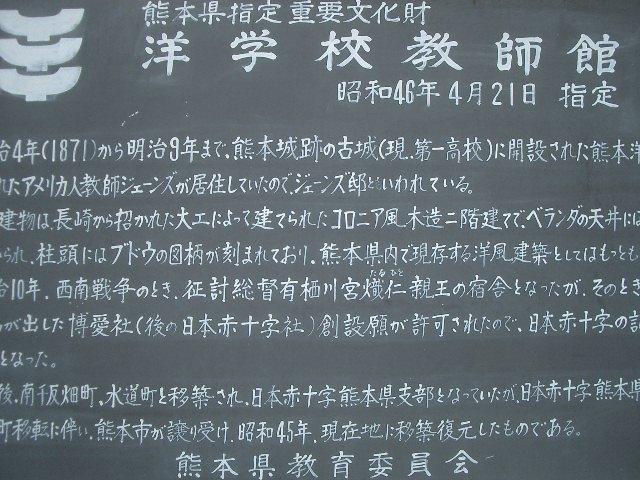 熊本県指定重要文化財
洋学校教師館
昭和46年4月21日 指定
治4年(1871)から明治9年まで、熊本城跡の古城(現、第一高校)に開設された熊本洋
れたアメリカ人教師ジェーンズが居住していたので、ジェーンズ邸ともいわれている。
建物は、長崎から招かれた大工によって建てられたコロニア風、木造二階建てで、ベランダの天井には
られ、柱頭にはブドウの図柄が刻まれており、熊本県内で現存する洋風建築としてはもっとも
治10年、西南戦争のとき、征討総督有栖川宮熾仁親王の宿舎となったが、そのとき
たるひと
が出した博愛社(後の日本赤十字社)創設願が許可されたので、日本赤十字の
となった。
後、南千反畑町、水道町と移築され、日本赤十字熊本県支部となっていたが、日本赤十字熊本県
町移転に伴い、熊本市が譲り受け、昭和45年、現在地に移築復元したものである。
熊本県教育委員会